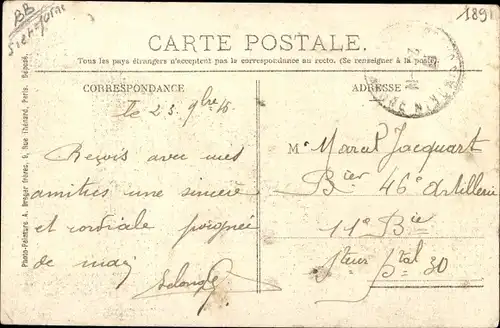 BB
1891
CARTE POSTALE.
Tous les pays étrangers n'acceptent pas la correspondance au recto. (Se renseigner à la poste)
CORRESPONDANCE
ADRESSE
Photo-Peinture A. Breger frères, 9, Rue Thénard, Paris. Déposé.
le 23 9bre 15
Reçois avec mes
amitiés une sincère
et cordiale poignée
de main
Mr Marcel Jacquart
Bier 46e Artillerie
11e Bie
Steur Ptal 30